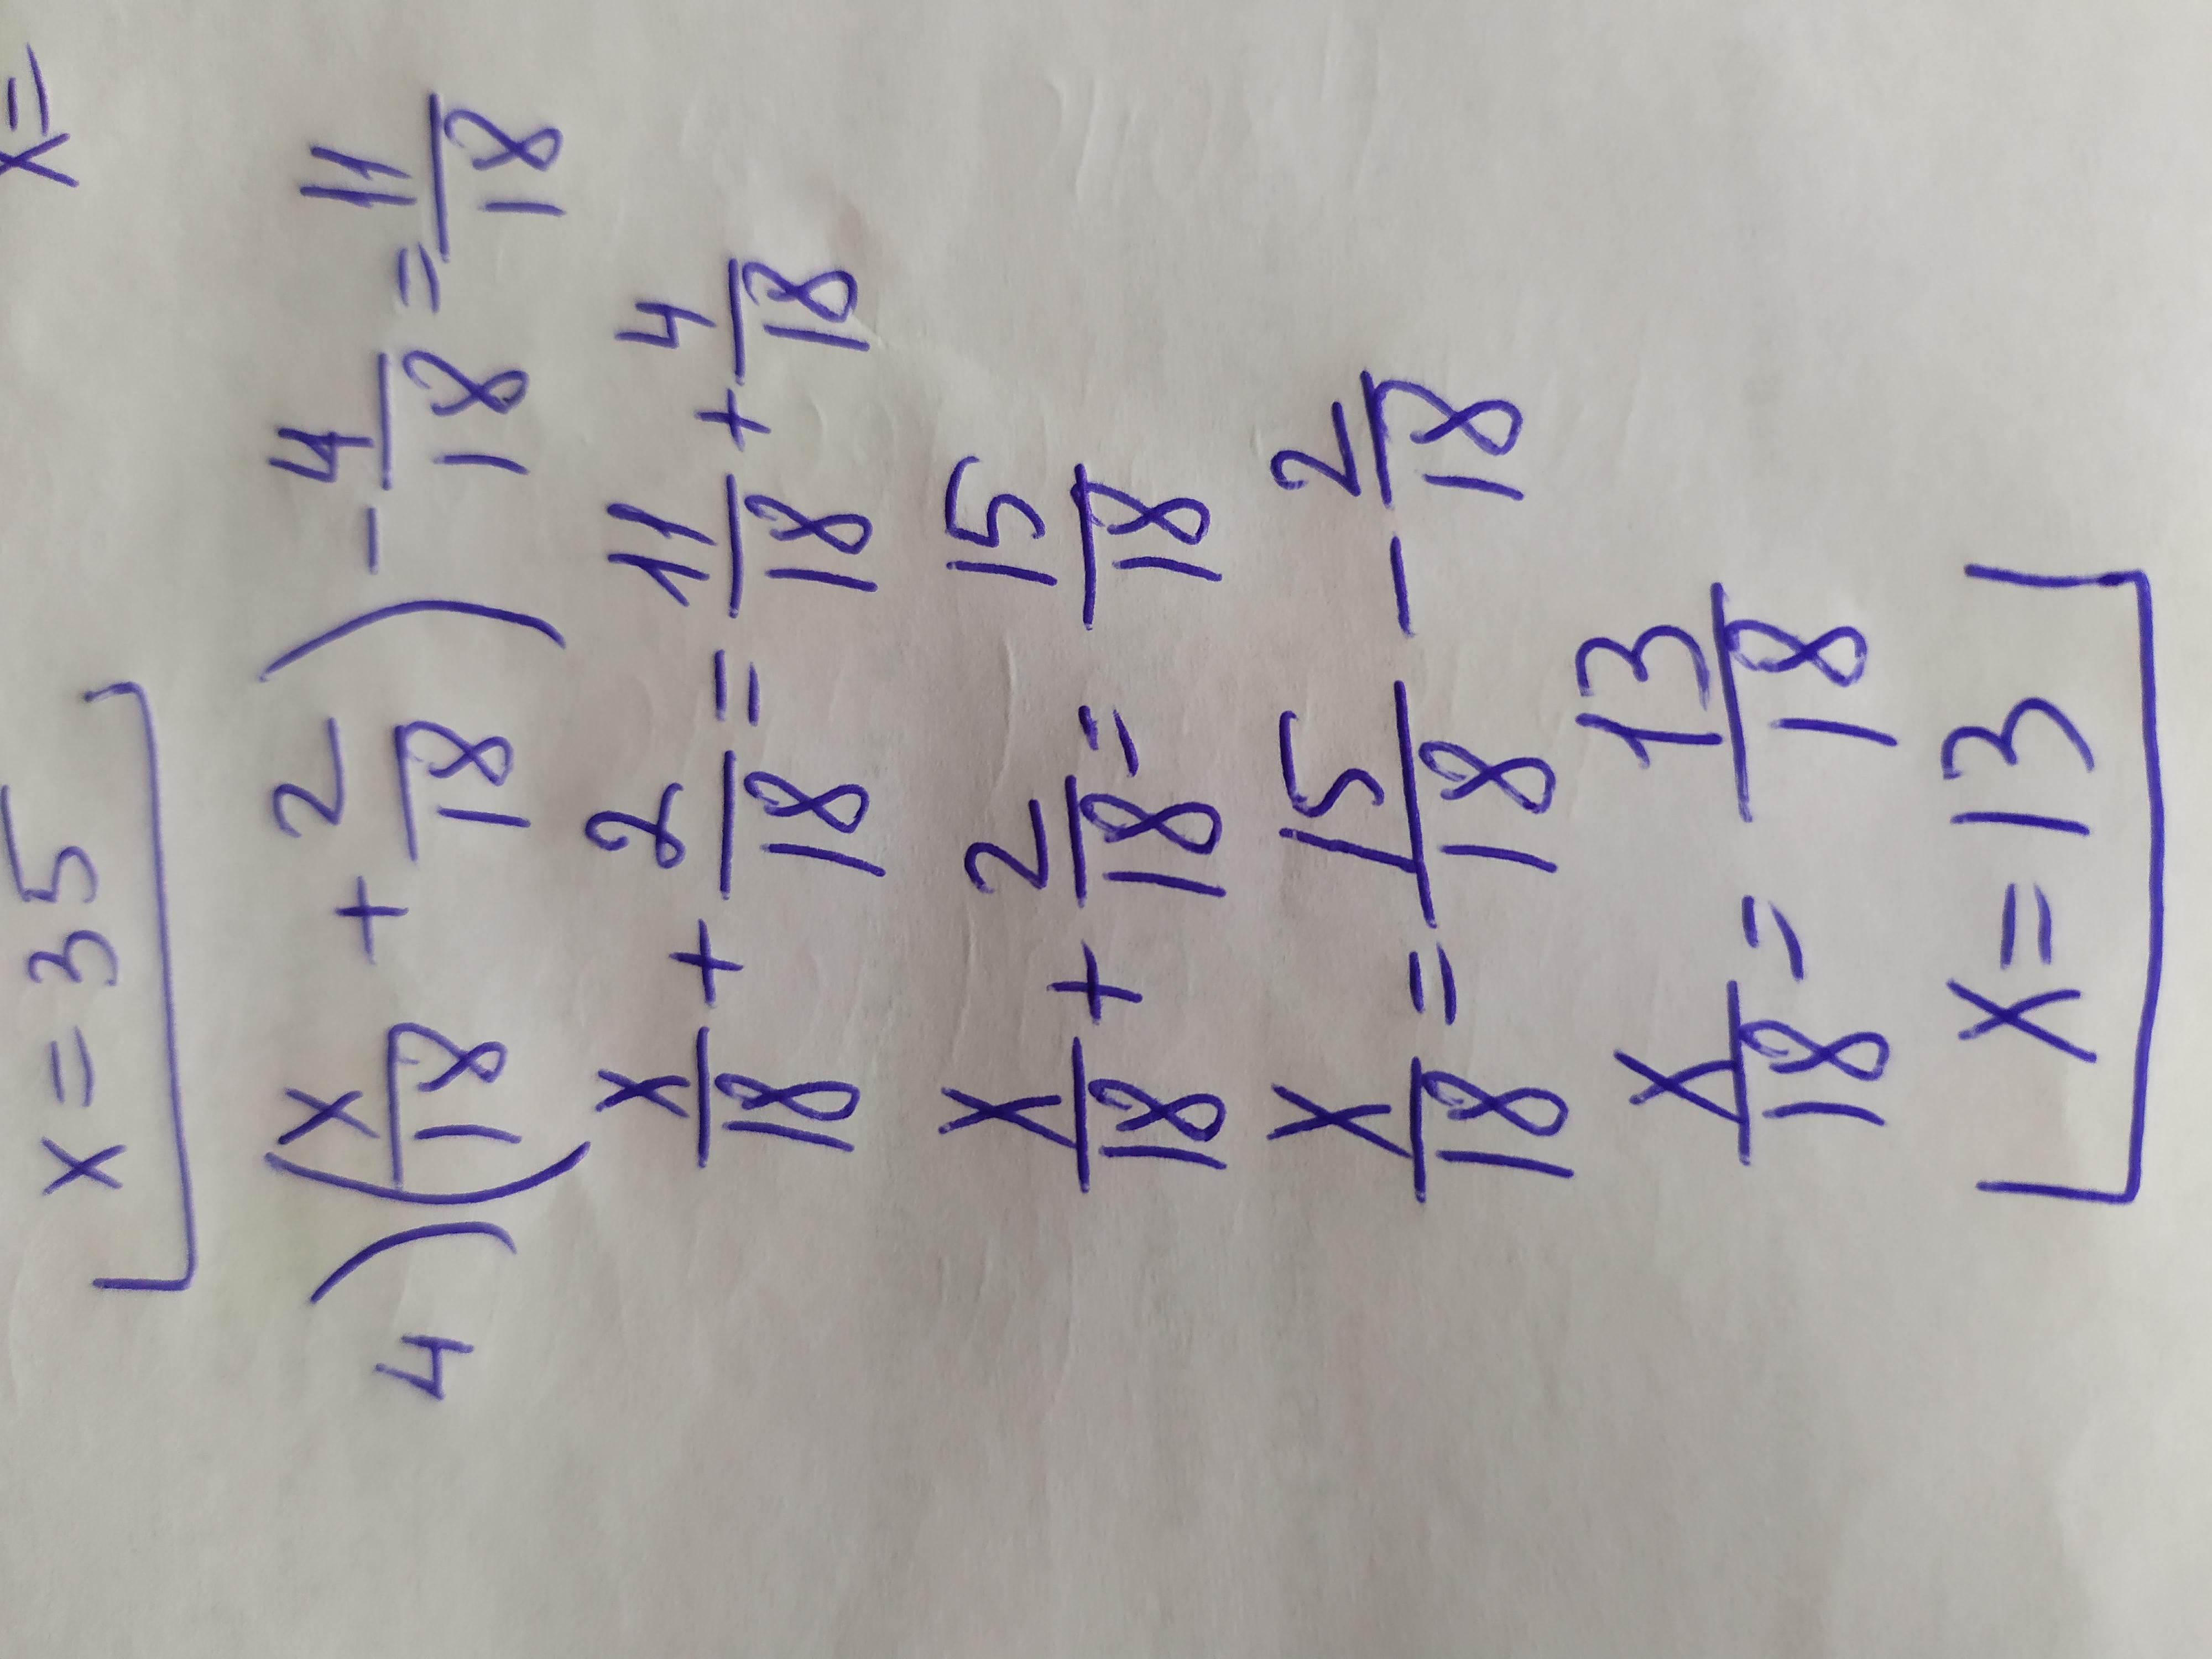 x=
x=35
4) (x/18 + 2/18) - 4/18 = 11/18
x/18 + 2/18 = 11/18 + 4/18
x/18 + 2/18 = 15/18
x/18 = 15/18 - 2/18
x/18 = 13/18
x=13